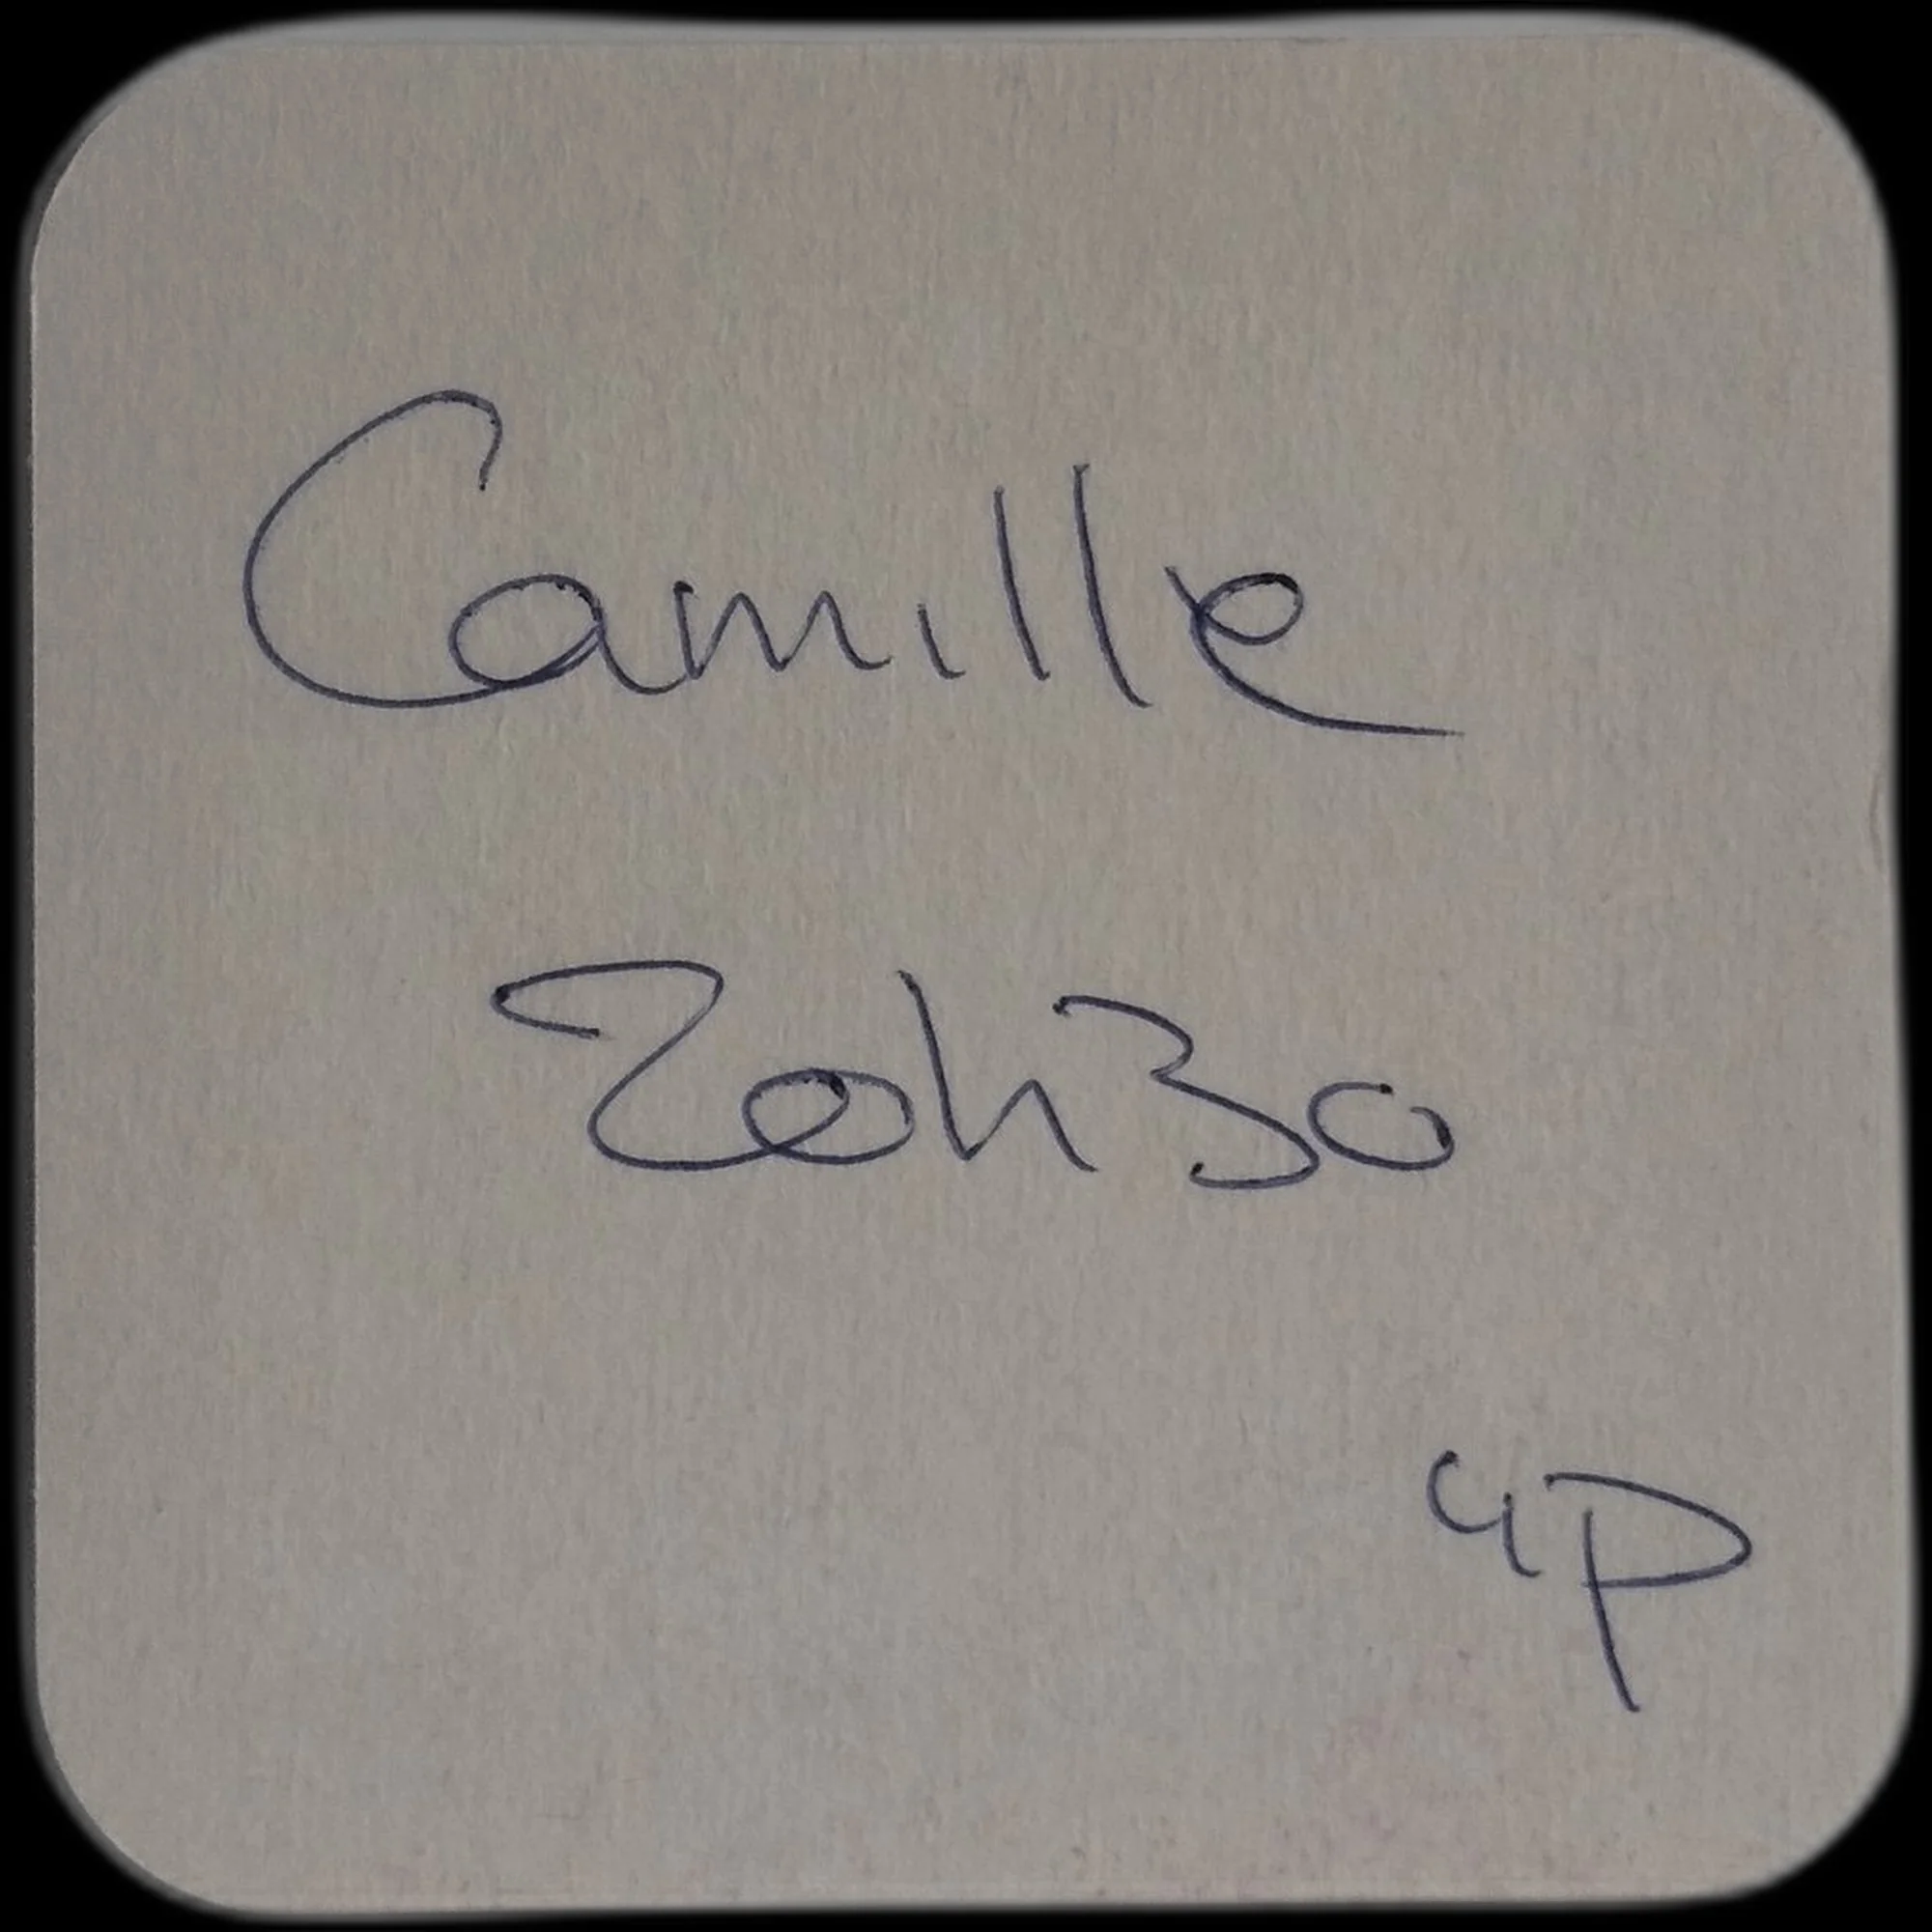 Camille
20h30
4P